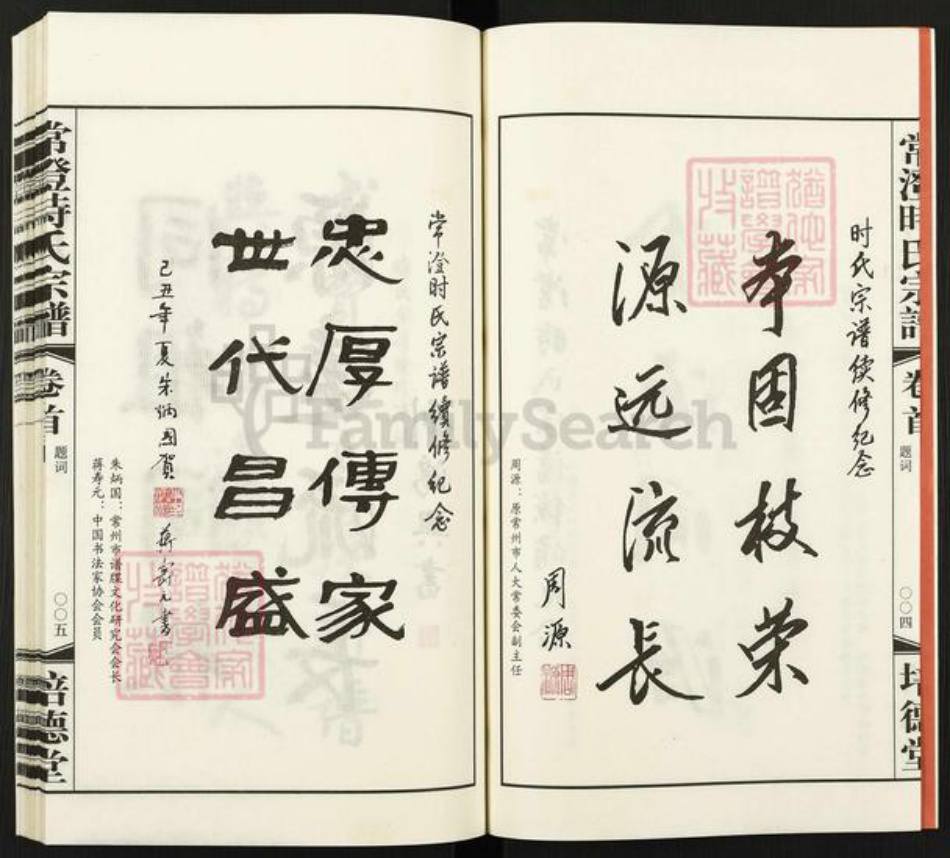 常澄时氏宗譜
卷首
题词
〇〇四
培德堂
时氏宗谱续修纪念
本固枝荣
源远流长
周源
周源：原常州市人大常委会副主任
常澄时氏宗谱續修纪念
忠厚傳家
世代昌盛
己丑年夏朱炳国贺
蒋寿元書
朱炳国：常州市谱牒文化研究会会长
蒋寿元：中国书法家协会会员
常澄時氏宗譜
卷首
题词
〇〇五
培德堂
FamilySearch